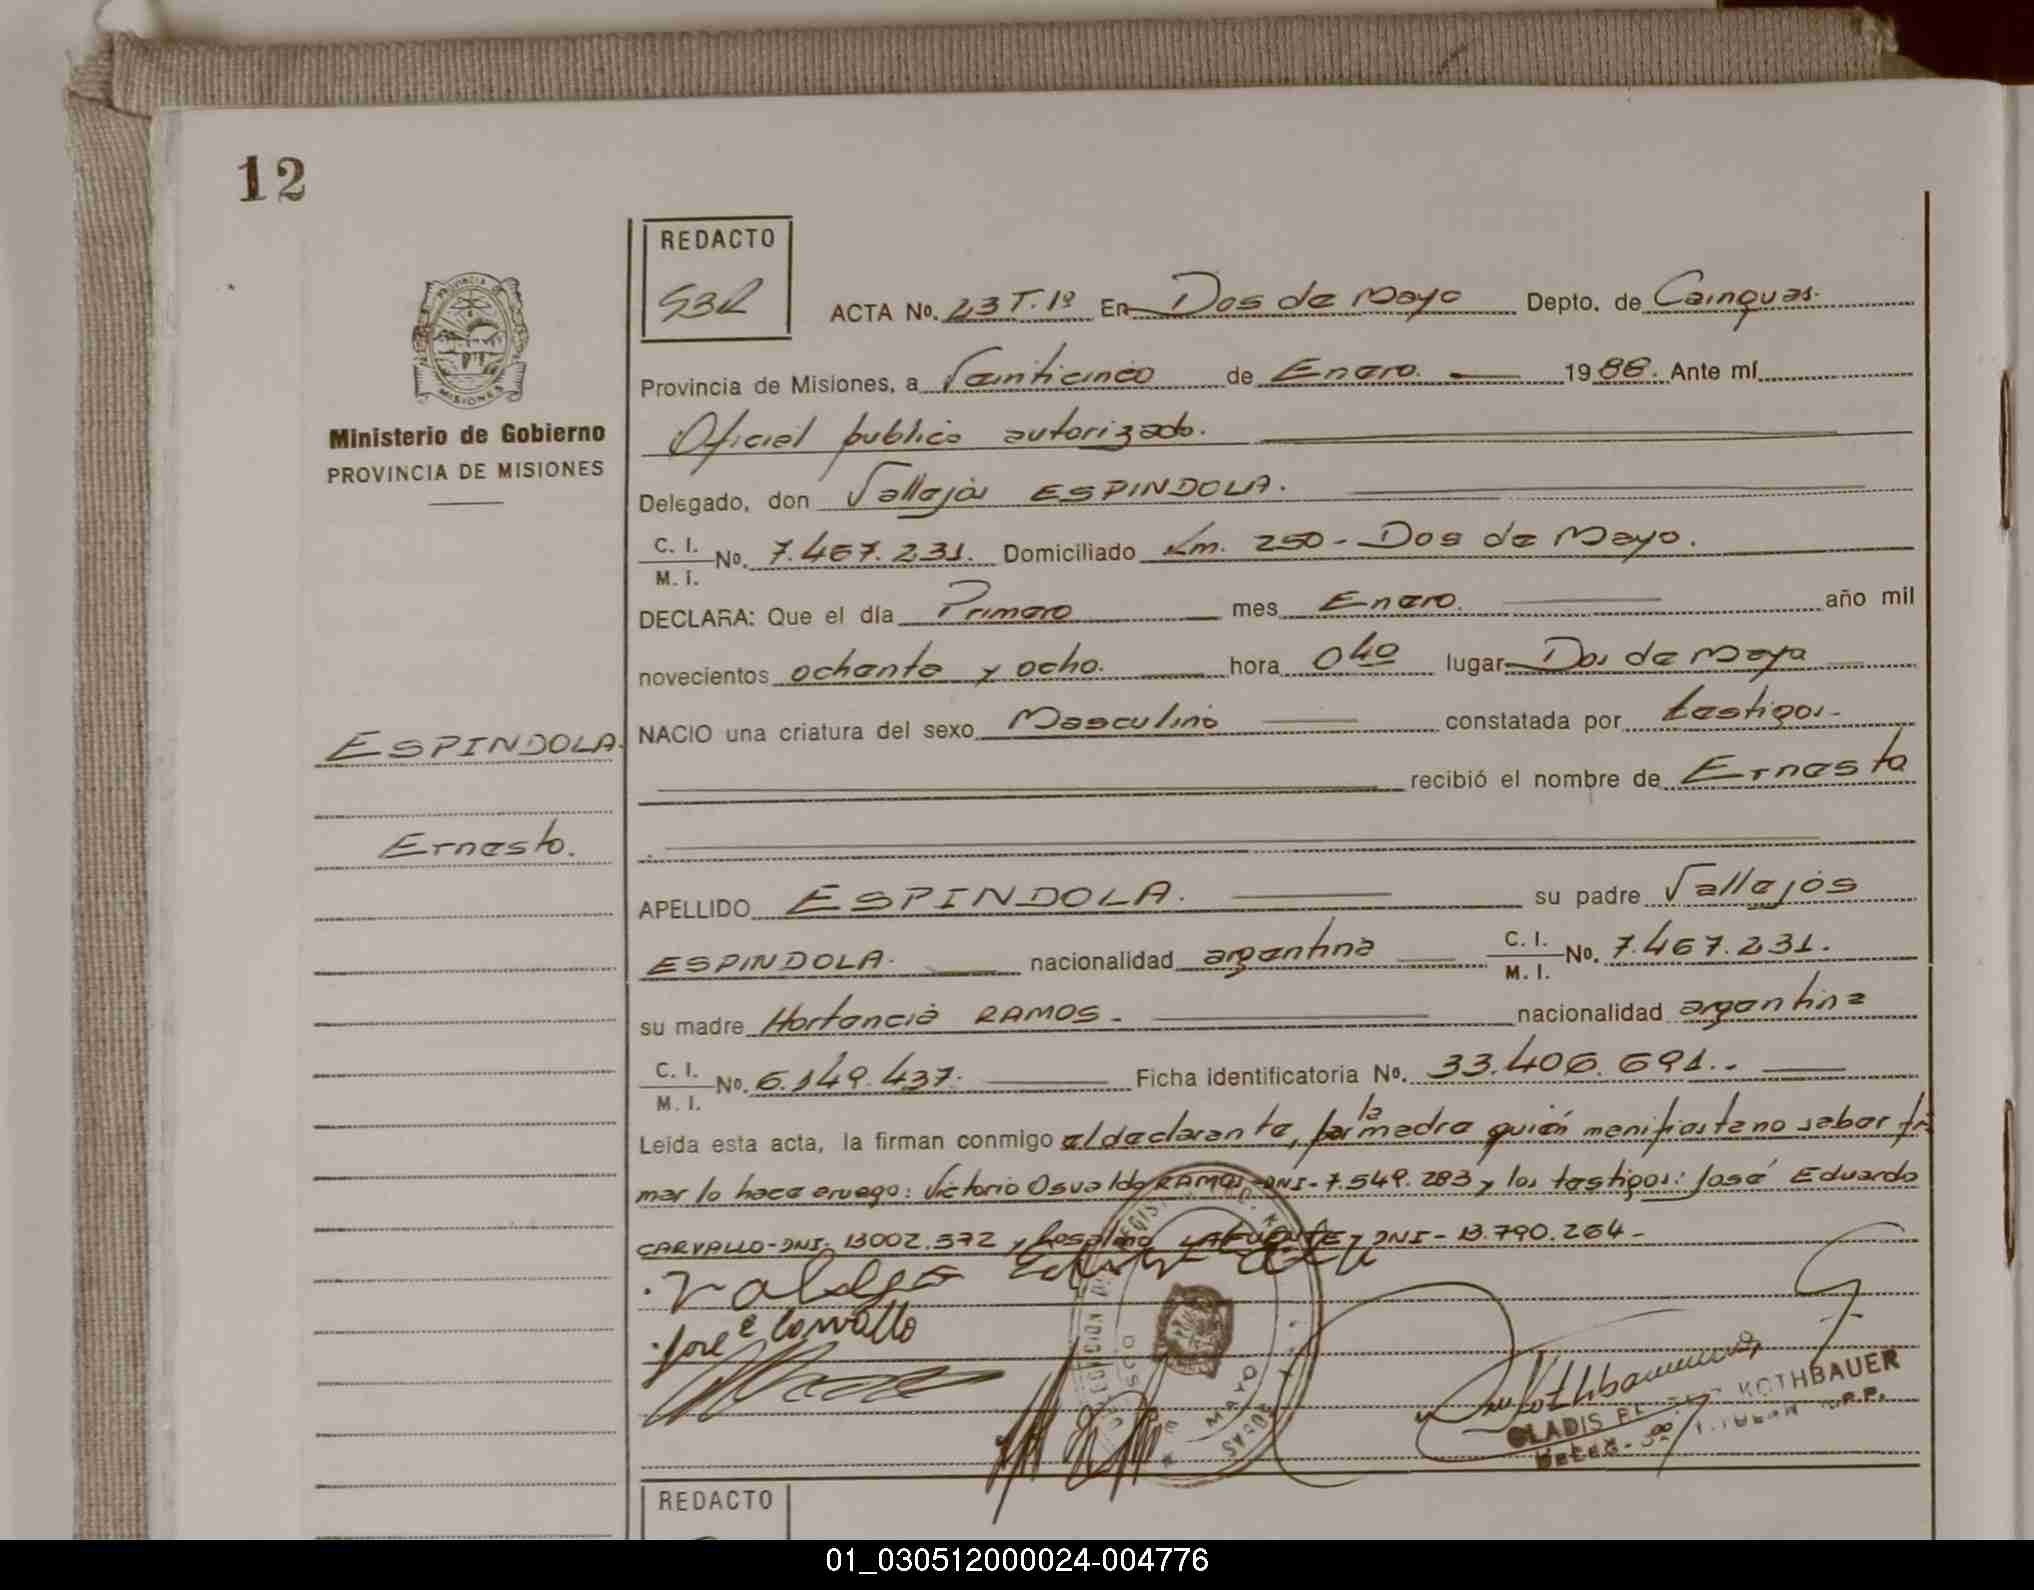 12
REDACTO
ACTA No. 23 T. 1º En Dos de Mayo Depto. de Cainguas.
Provincia de Misiones, a Veinticinco de Enero. 1988. Ante mí
Oficial publico autorizado.
MISIONES
Ministerio de Gobierno
PROVINCIA DE MISIONES
Delegado, don Vallejos ESPINDOLA.
C. I.
M. I. No. 7.467.231. Domiciliado Km. 250 - Dos de Mayo.
DECLARA: Que el día Primero mes Enero. año mil
novecientos ochenta y ocho. hora 040 lugar Dos de Mayo
NACIO una criatura del sexo Masculino constatada por testigos.
ESPINDOLA.
recibió el nombre de Ernesto
Ernesto.
APELLIDO ESPINDOLA. su padre Vallejos
ESPINDOLA. nacionalidad argentina C. I. M. I. No. 7.467.231.
su madre Hortencia RAMOS. nacionalidad argentina
C. I.
M. I. No. 6.149.437. Ficha identificatoria No. 33.406.691.
Leída esta acta, la firman conmigo el declarante, por la madre quién manifiesta no saber fir
mar lo hace aruego: Victorio Osvaldo RAMOS - DNI - 7.549.283 y los testigos: José Eduardo
CARVALLO - DNI - 13002.572 y LAFUENTE - DNI - 13.790.264 -
José E Carvallo
MAYO
GLADIS KOTHBAUER
REDACTO
01_030512000024-004776